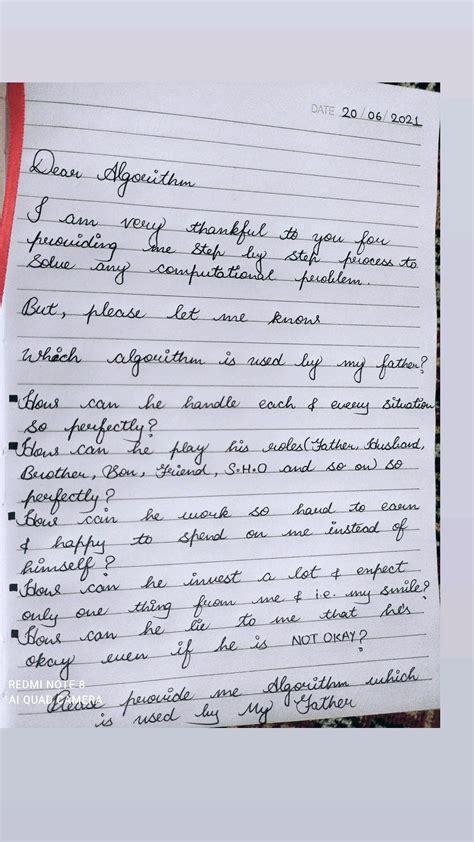 DATE 20/06/2021
Dear Algorithm
I am very thankful to you for
providing me step by step process to
solve any computational problem.
But, please let me know
Which algorithm is used by my father?
How can he handle each & every situation
so perfectly?
How can he play his roles (Father, Husband,
Brother, Son, Friend, S.H.O and so on) so
perfectly?
How can he work so hard to earn
& happy to spend on me instead of
himself?
How can he invest a lot & expect
only one thing from me & i.e. my smile?
How can he lie to me that he's
okay even if he is NOT OKAY?
provide me Algorithm which
is used by My Father
REDMI NOTE 8
AI QUAD CAMERA